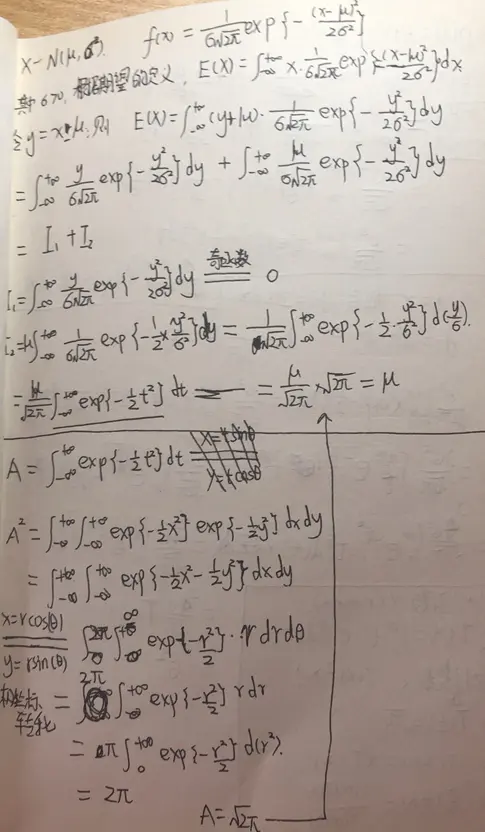 X~N(μ, σ²). f(x) = 1/(σ√2π) exp{-(x-μ)²/2σ²}
其中 σ>0, 根据期望的定义, E(X) = ∫_{-∞}^{+∞} x·1/(σ√2π) exp{-(x-μ)²/2σ²}dx
令y=x-μ, 则 E(X) = ∫_{-∞}^{+∞} (y+μ)·1/(σ√2π) exp{-y²/2σ²}dy
= ∫_{-∞}^{+∞} y/(σ√2π) exp{-y²/2σ²}dy + ∫_{-∞}^{+∞} μ/(σ√2π) exp{-y²/2σ²}dy
= I₁ + I₂
I₁ = ∫_{-∞}^{+∞} y/(σ√2π) exp{-y²/2σ²}dy 奇函数 = 0
I₂ = μ∫_{-∞}^{+∞} 1/(σ√2π) exp{-1/2 × y²/σ²}dy = 1/√2π ∫_{-∞}^{+∞} exp{-1/2·y²/σ²}d(y/σ).
= μ/√2π ∫_{-∞}^{+∞} exp{-1/2t²}dt = μ/√2π × √2π = μ
A = ∫_{-∞}^{+∞} exp{-1/2t²}dt
A² = ∫_{-∞}^{+∞} ∫_{-∞}^{+∞} exp{-1/2x²} exp{-1/2y²}dxdy
= ∫_{-∞}^{+∞} ∫_{-∞}^{+∞} exp{-1/2x²-1/2y²}dxdy
x=rcos(θ) y=rsin(θ) ∫_0^{2π} ∫_0^{∞} exp{-r²/2}·r dr dθ
极坐标 = 2π ∫_{-∞}^{+∞} exp{-r²/2} r dr
转化
= π ∫_0^{+∞} exp{-r²/2}d(r²).
= 2π
A=√2π